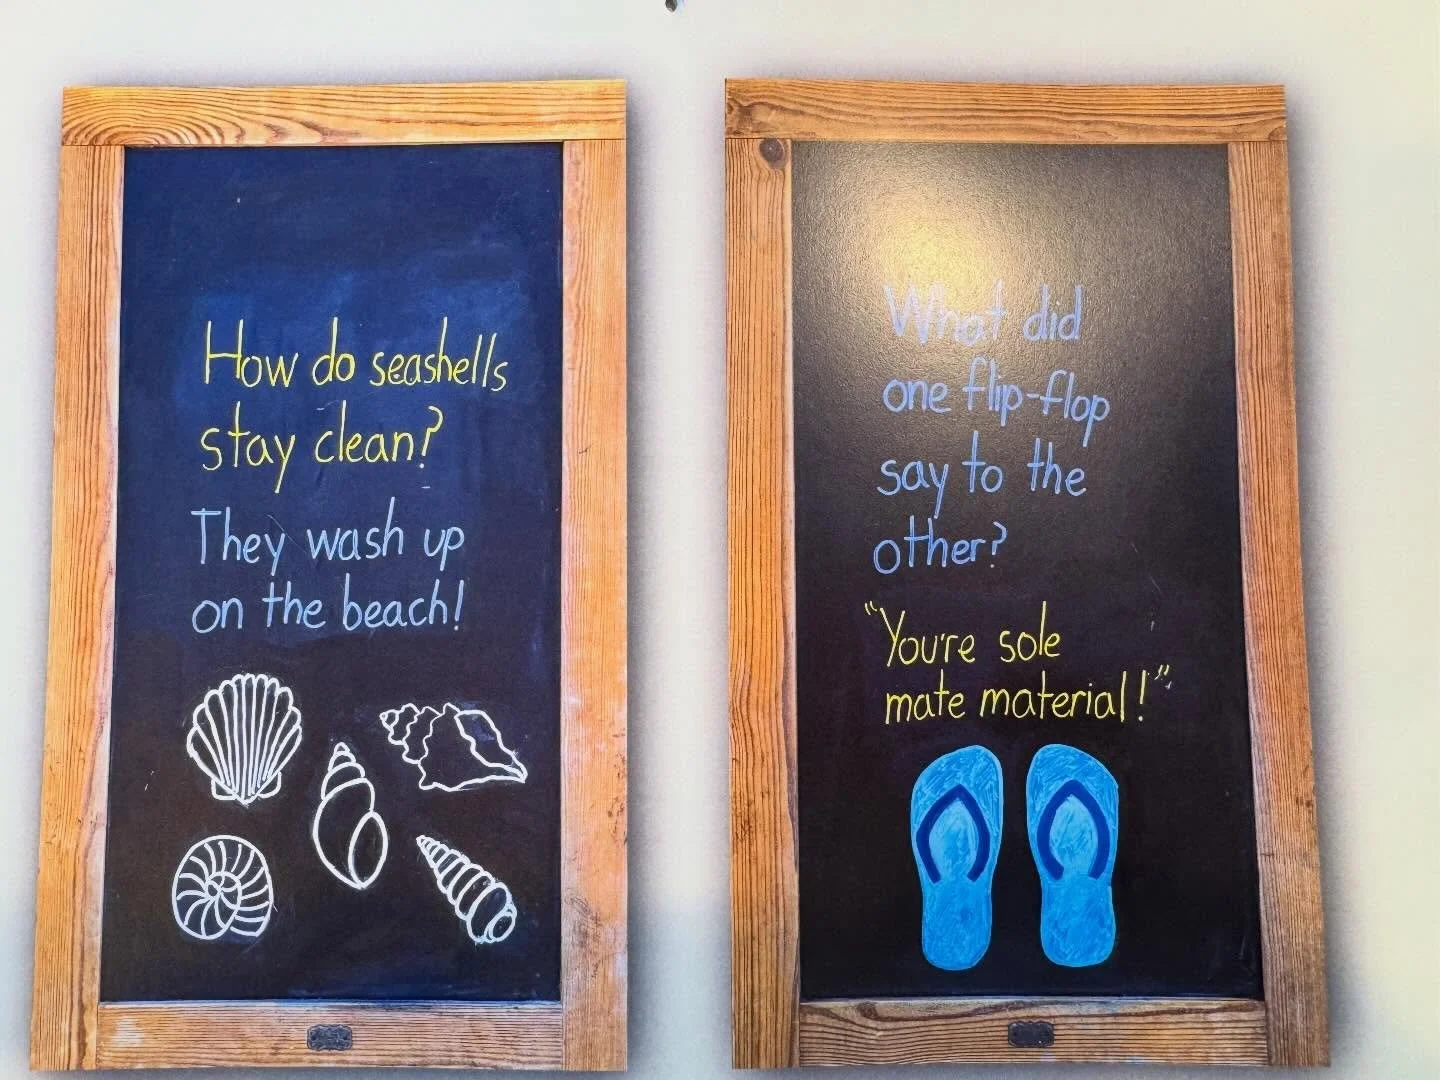 How do seashells
stay clean?
They wash up
on the beach!
What did
one flip-flop
say to the
other?
"You're sole
mate material!"